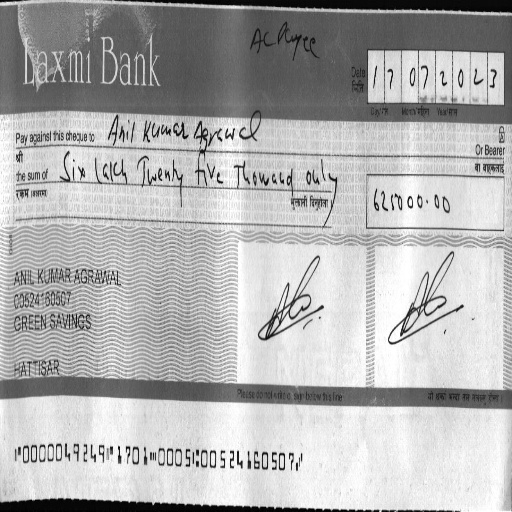 Laxmi Bank
AC Payee
Date 17072023
मिति
Pay against this cheque to Anil Kumar Agrawal
Or Bearer
श्री
वा वाहकलाई
the sum of Six lakh Twenty five Thousand only
रकम
625000.00
ANIL KUMAR AGRAWAL
00524160507
GREEN SAVINGS
HATTISAR
Please do not write or sign below this line
⑈0000049249⑈1701⑈0005⑆00524160507⑈